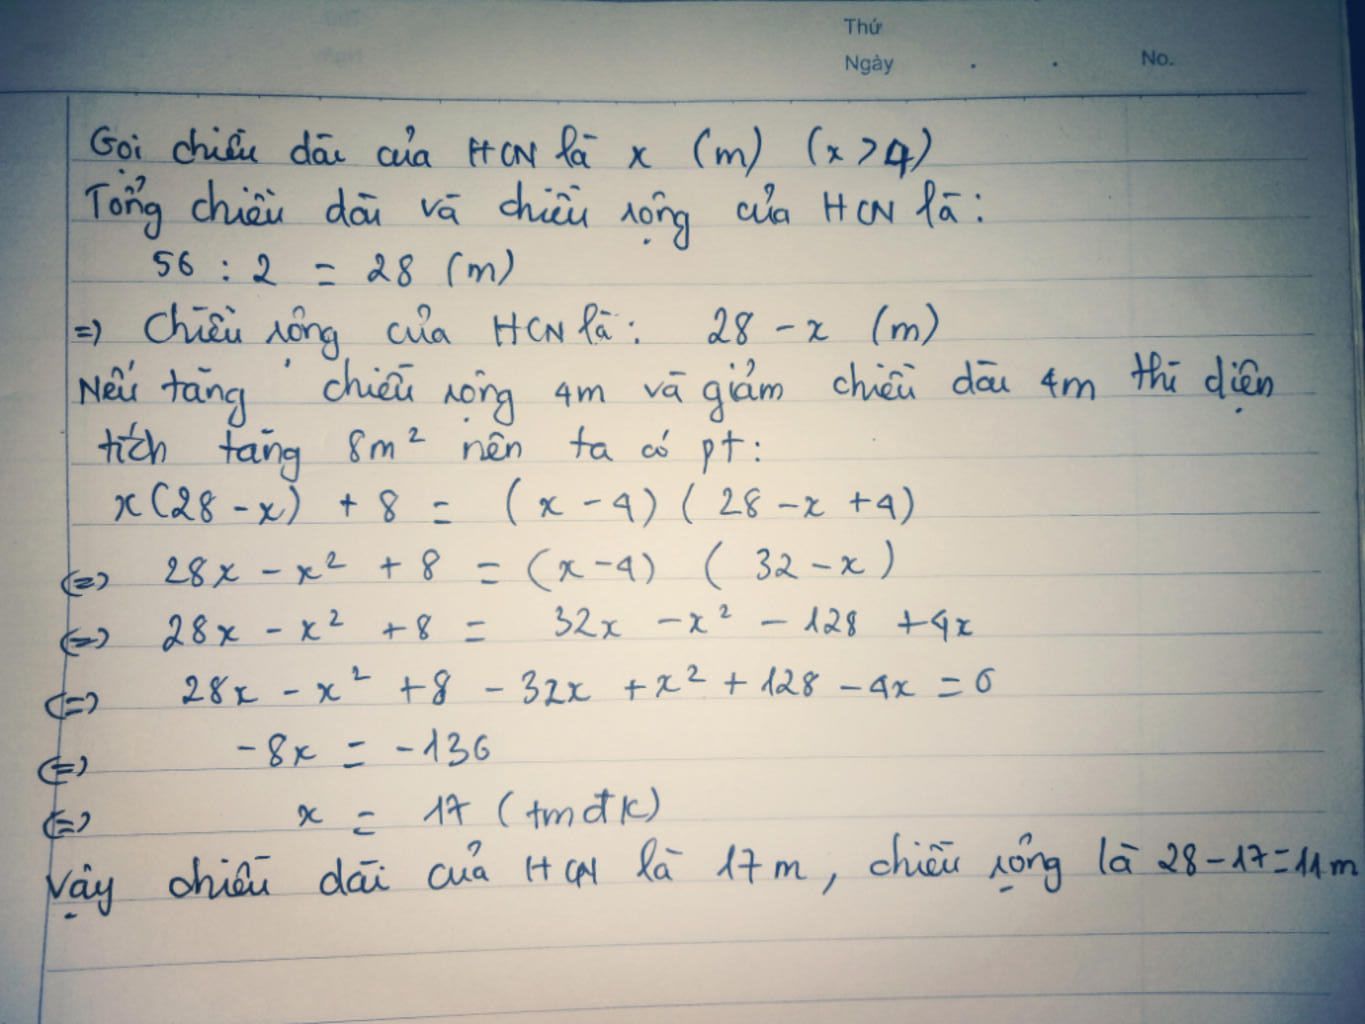 Thứ
Ngày . . No.
Gọi chiều dài của HCN là x (m) (x > 4)
Tổng chiều dài và chiều rộng của HCN là:
56 : 2 = 28 (m)
=) Chiều rộng của HCN là: 28 - x (m)
Nếu tăng chiều rộng 4m và giảm chiều dài 4m thì diện
tích tăng 8m² nên ta có pt:
x(28 - x) + 8 = (x - 4) (28 - x + 4)
(=) 28x - x² + 8 = (x - 4) (32 - x)
(=) 28x - x² + 8 = 32x - x² - 128 + 4x
(=) 28x - x² + 8 - 32x + x² + 128 - 4x = 0
(=) -8x = -136
(=) x = 17 (tmđk)
Vậy chiều dài của HCN là 17m, chiều rộng là 28-17=11m